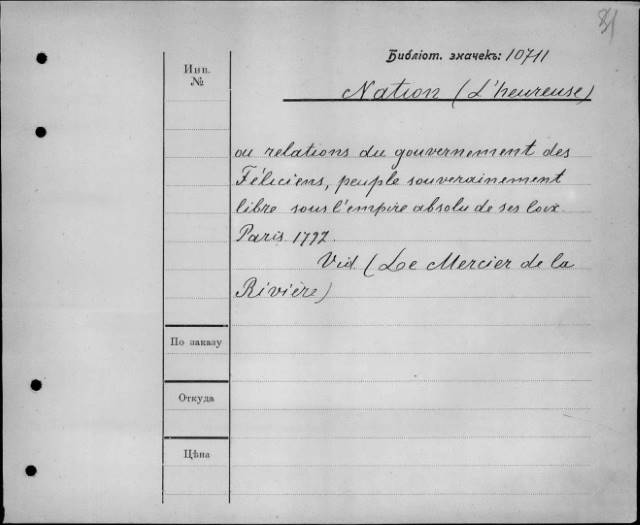 Библіот. значекъ: 10711
Инв.
№
Nation (L'heureuse)
ou relations du gouvernement des
Féliciens, peuple souverainement
libre sous l'empire absolu de ses loix.
Paris 1792.
Vid. (Le Mercier de la
Rivière)
По заказу
Откуда
Цѣна